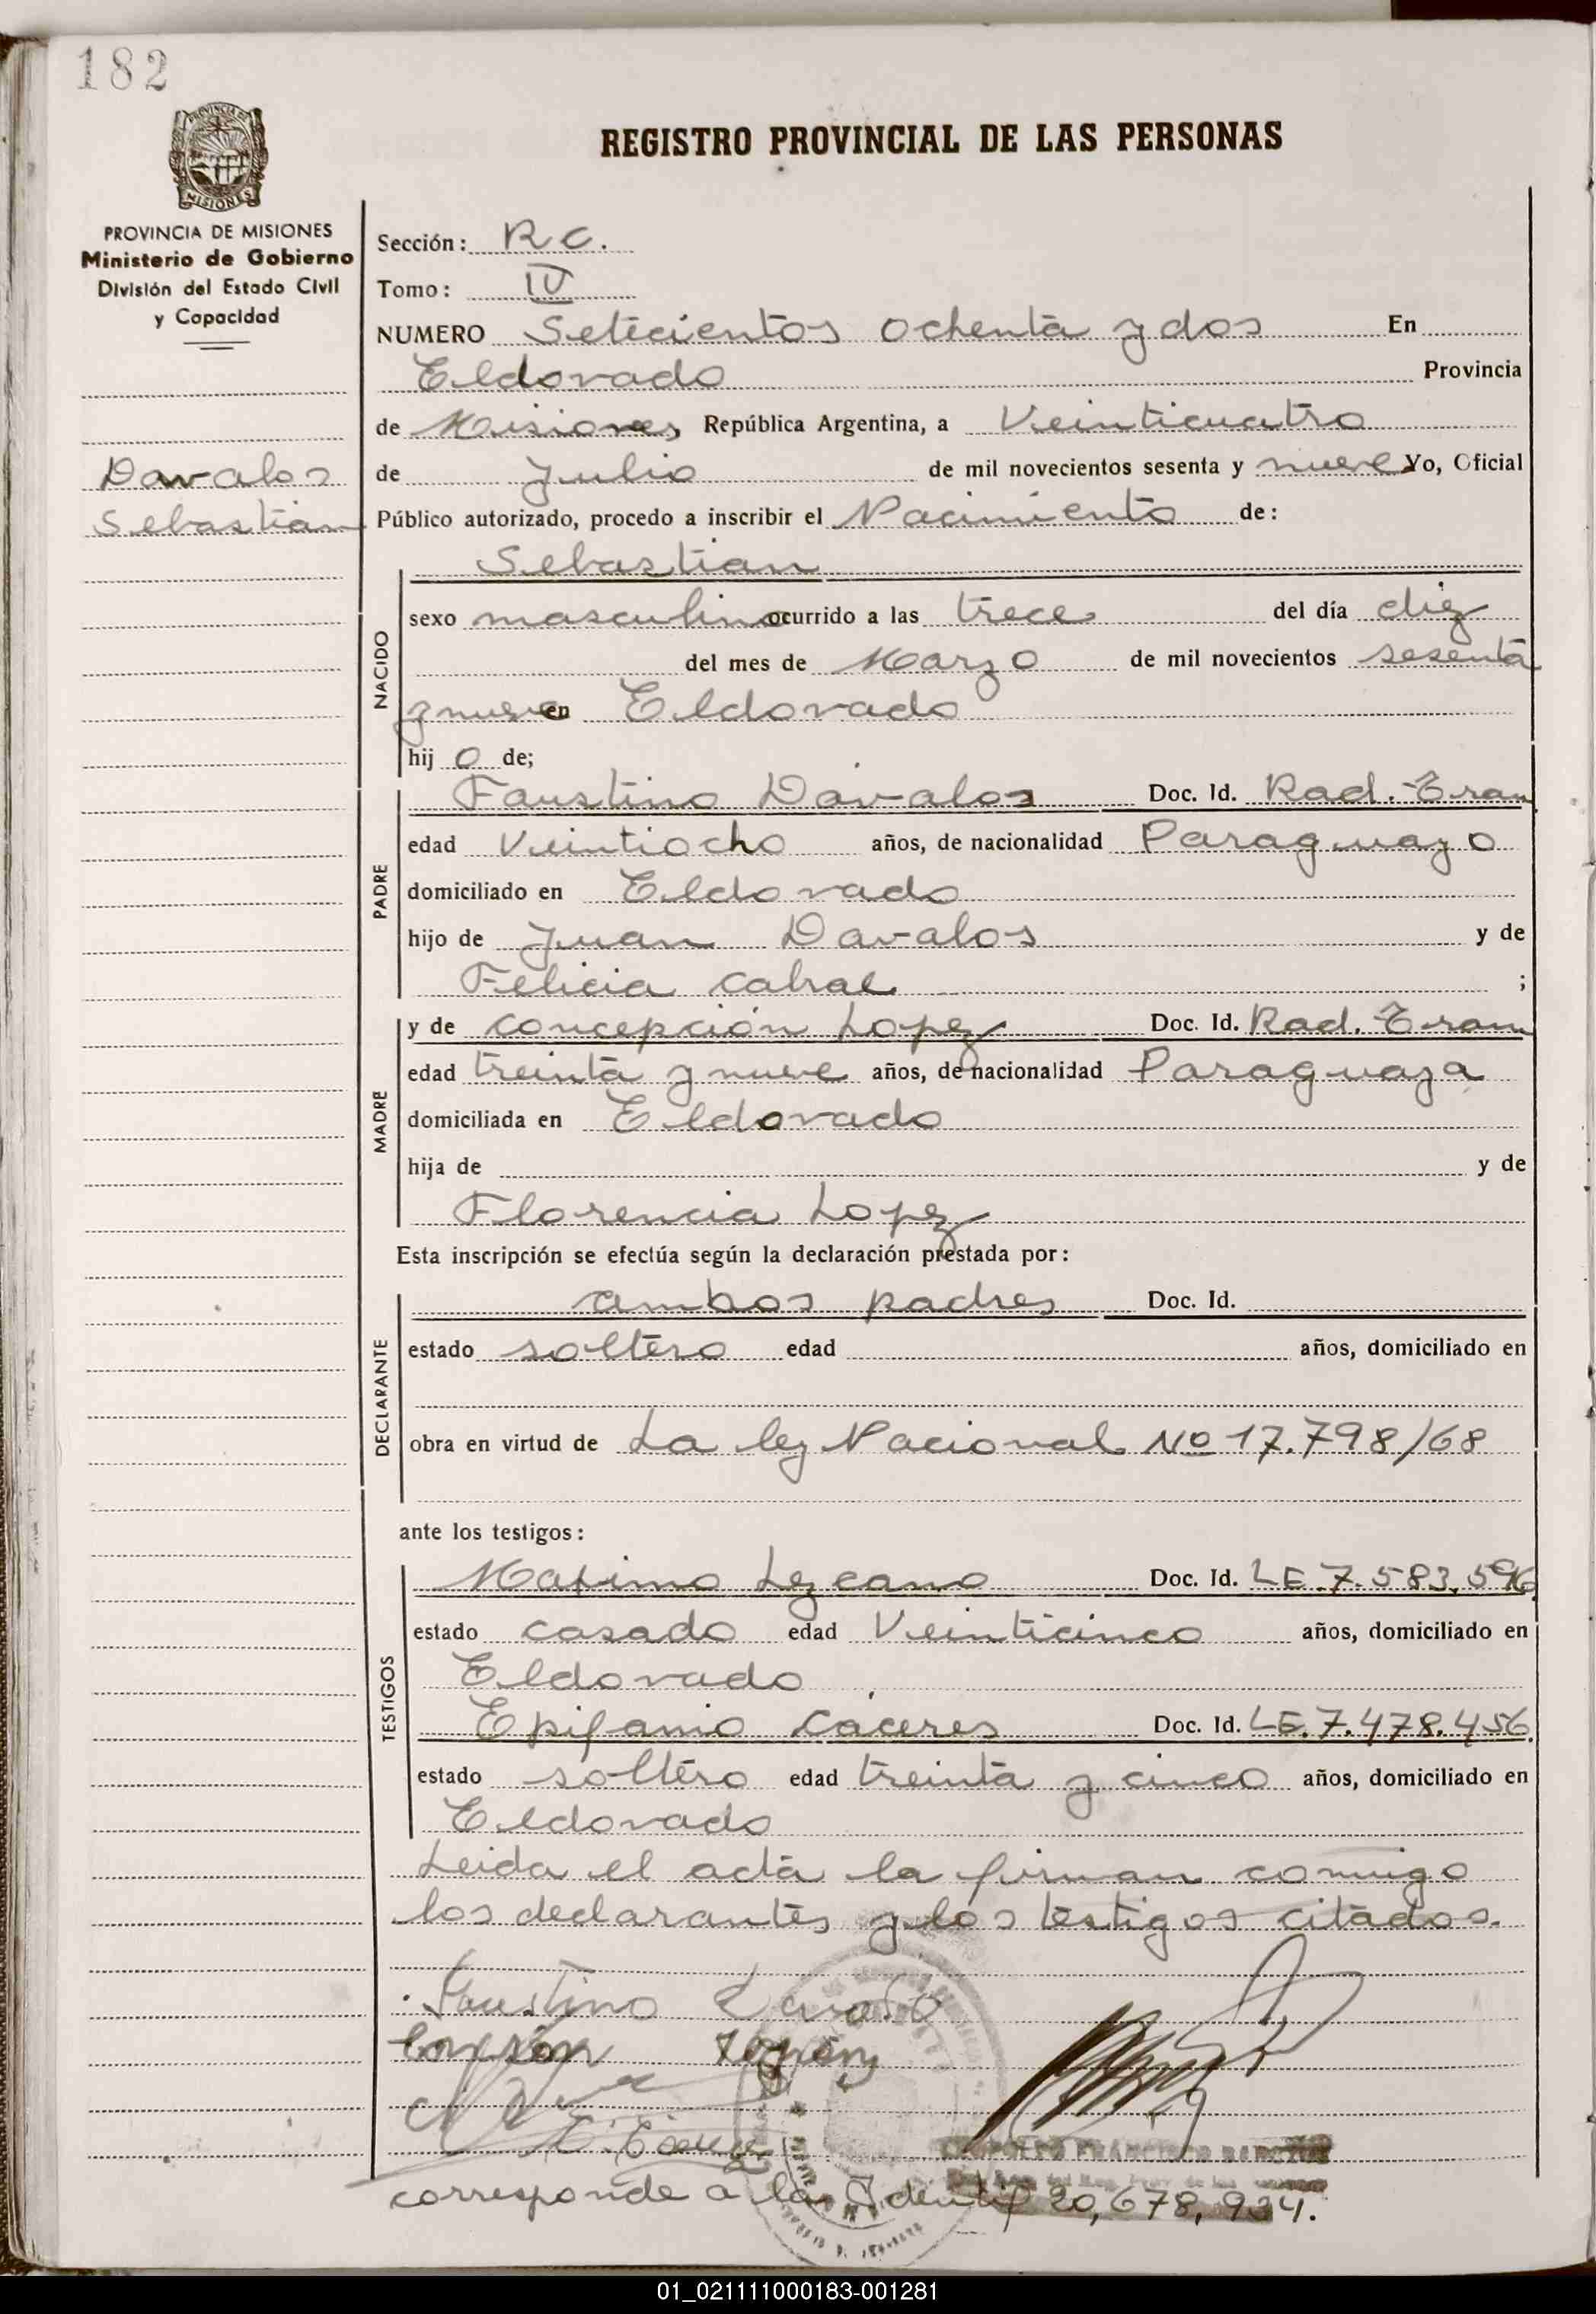 182
REGISTRO PROVINCIAL DE LAS PERSONAS
PROVINCIA DE MISIONES
Ministerio de Gobierno
División del Estado Civil
y Capacidad
Davalos
Sebastian
Sección: R C.
Tomo: IV
NUMERO Setecientos ochenta y dos En
Eldorado Provincia
de Misiones, República Argentina, a Veinticuatro
de Julio de mil novecientos sesenta y nueve Yo, Oficial
Público autorizado, procedo a inscribir el Nacimiento de:
Sebastian
NACIDO
sexo masculino ocurrido a las trece del día diez
del mes de Marzo de mil novecientos sesenta
y nueve en Eldorado
hij o de;
PADRE
Faustino Davalos Doc. Id. Rad. Tram
edad Veintiocho años, de nacionalidad Paraguayo
domiciliado en Eldorado
hijo de Juan Davalos y de
Felicia Cabral ;
MADRE
y de Concepción Lopez Doc. Id. Rad. Tram
edad treinta y nueve años, de nacionalidad Paraguaya
domiciliada en Eldorado
hija de y de
Florencia Lopez
Esta inscripción se efectúa según la declaración prestada por:
DECLARANTE
ambos padres Doc. Id.
estado soltero edad años, domiciliado en
obra en virtud de La ley Nacional Nº 17.798/68
ante los testigos:
TESTIGOS
Maximo Lezcano Doc. Id. LE.7.583.596
estado casado edad Veinticinco años, domiciliado en
Eldorado
Epifanio Cáceres Doc. Id. LE.7.478.456
estado soltero edad treinta y cinco años, domiciliado en
Eldorado
Leida el acta la firman comigo
los declarantes y los testigos citados.
Faustino
corresponde a la Identif 20,678,934.
01_021111000183-001281